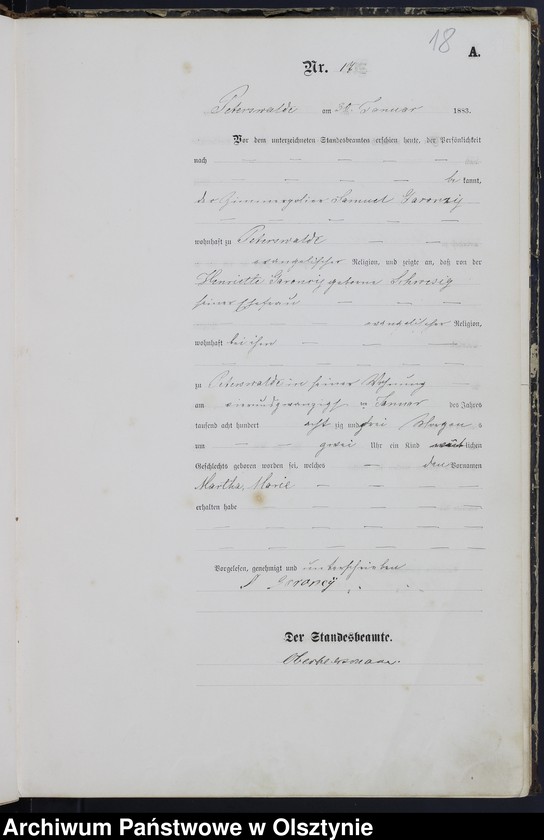 18
A.
Nr. 17
Peterswalde am Januar 1883.
Vor dem unterzeichneten Standesbeamten erschien heute, der Persönlichkeit
nach
be kannt,
der Samuel
wohnhaft zu Peterswalde
evangelischer Religion, und zeigte an, daß von der
Henriette geborene
seiner Ehefrau
evangelischer Religion,
wohnhaft bei ihm
zu Peterswalde in seiner Wohnung
am vierundzwanzigsten Januar des Jahres
tausend acht hundert acht zig und drei Morgen s
um zwei Uhr ein Kind weiblichen
Geschlechts geboren worden sei, welches den Vornamen
Martha, Marie
erhalten habe
Vorgelesen, genehmigt und unterschrieben
Der Standesbeamte.
Archiwum Państwowe w Olsztynie